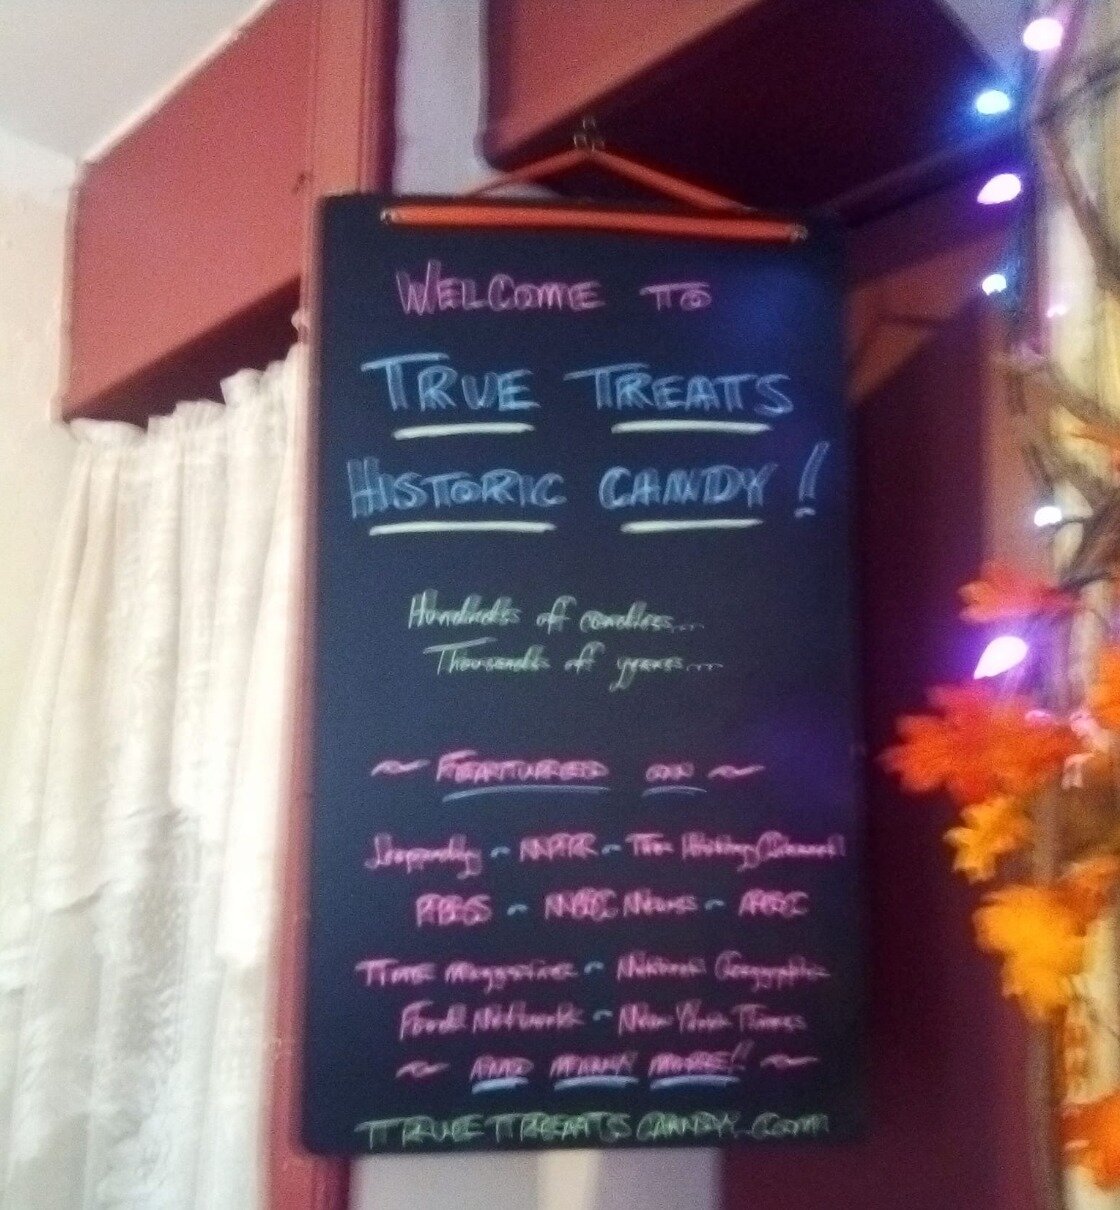 WELCOME TO
TRUE TREATS
HISTORIC CANDY!
Hundreds of candies...
Thousands of years...
~ FEATURED ON ~
Jeopardy ~ NPR ~ The History Channel
PBS ~ NBC News ~ ABC
Time Magazine ~ National Geographic
Food Network ~ New York Times
~ AND MANY MORE!! ~
TRUETREATSCANDY.COM